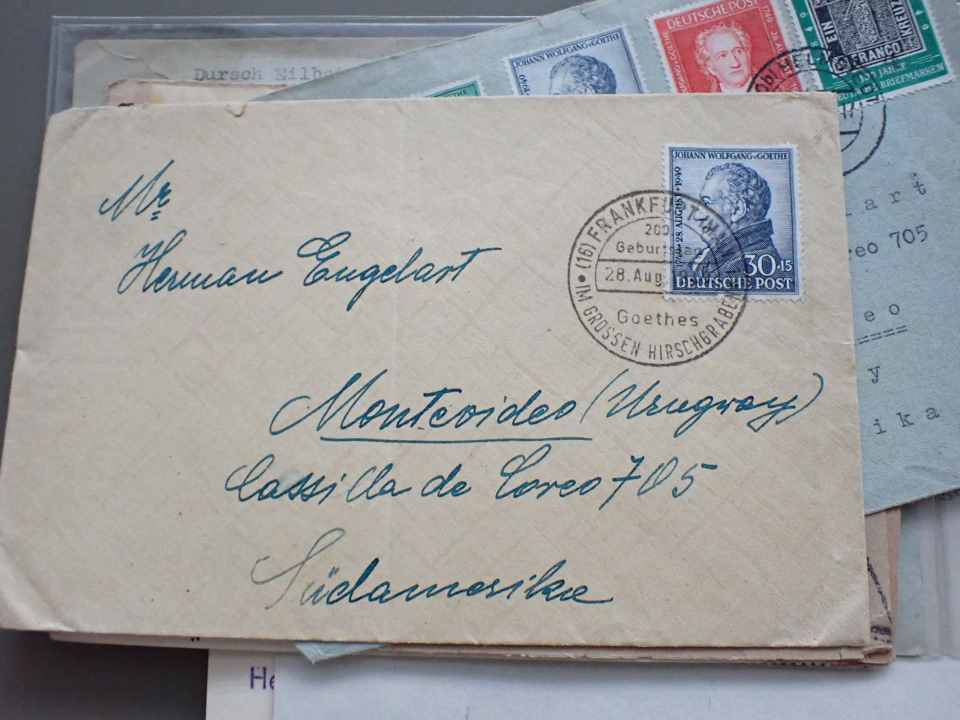 Dursch Eilbo
JOHANN WOLFGANG v. GOETHE
DEUTSCHE POST
FRANCO
100 JAHRE
BRIEFMARKEN
Mr
Herman Engelart
Montevideo (Uruguay)
Cassilla de Coreo 705
Südamerika
JOHANN WOLFGANG v. GOETHE
28 AUGUST 1949
30+15
DEUTSCHE POST
(16) FRANKFURT
200
Geburtstag
28. Aug.
Goethes
IM GROSSEN HIRSCHGRABEN
art
reo 705
eo
y
ika
He